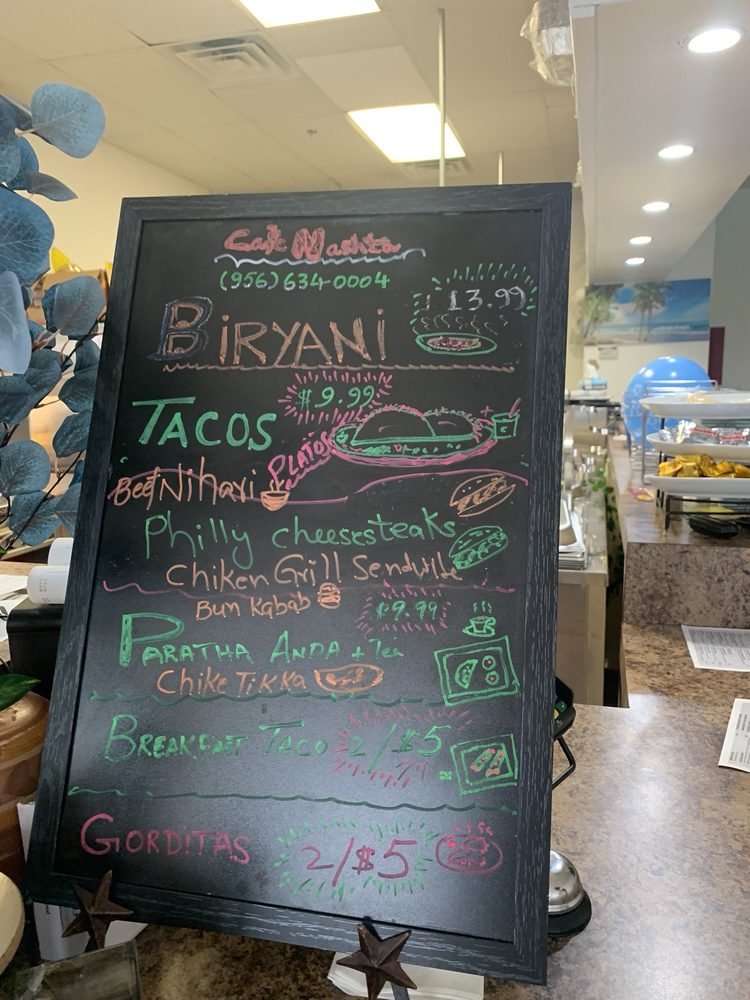 Café Nashta
(956) 634-0004
$ 13.99
BiRYANi
$9.99
TACOS
PLATOS
Beef Nihari
Philly cheesesteaks
Chiken Grill Sendwihe
Bun Kabab
$9.99
PARATHA ANDA + Tea
Chike TiKKa
BREAKFAST TACO 2/$5
GORDITAS 2/$5